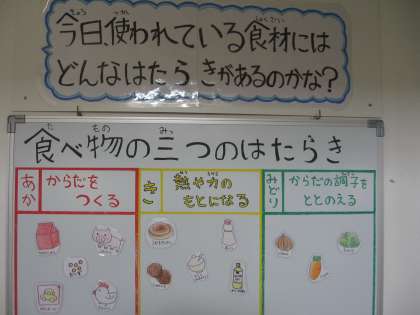 今日、使われている食材には
どんなはたらきがあるのかな?
食べ物の三つのはたらき
あか
からだを
つくる
きいろ
熱や力の
もとになる
みどり
からだの調子を
ととのえる